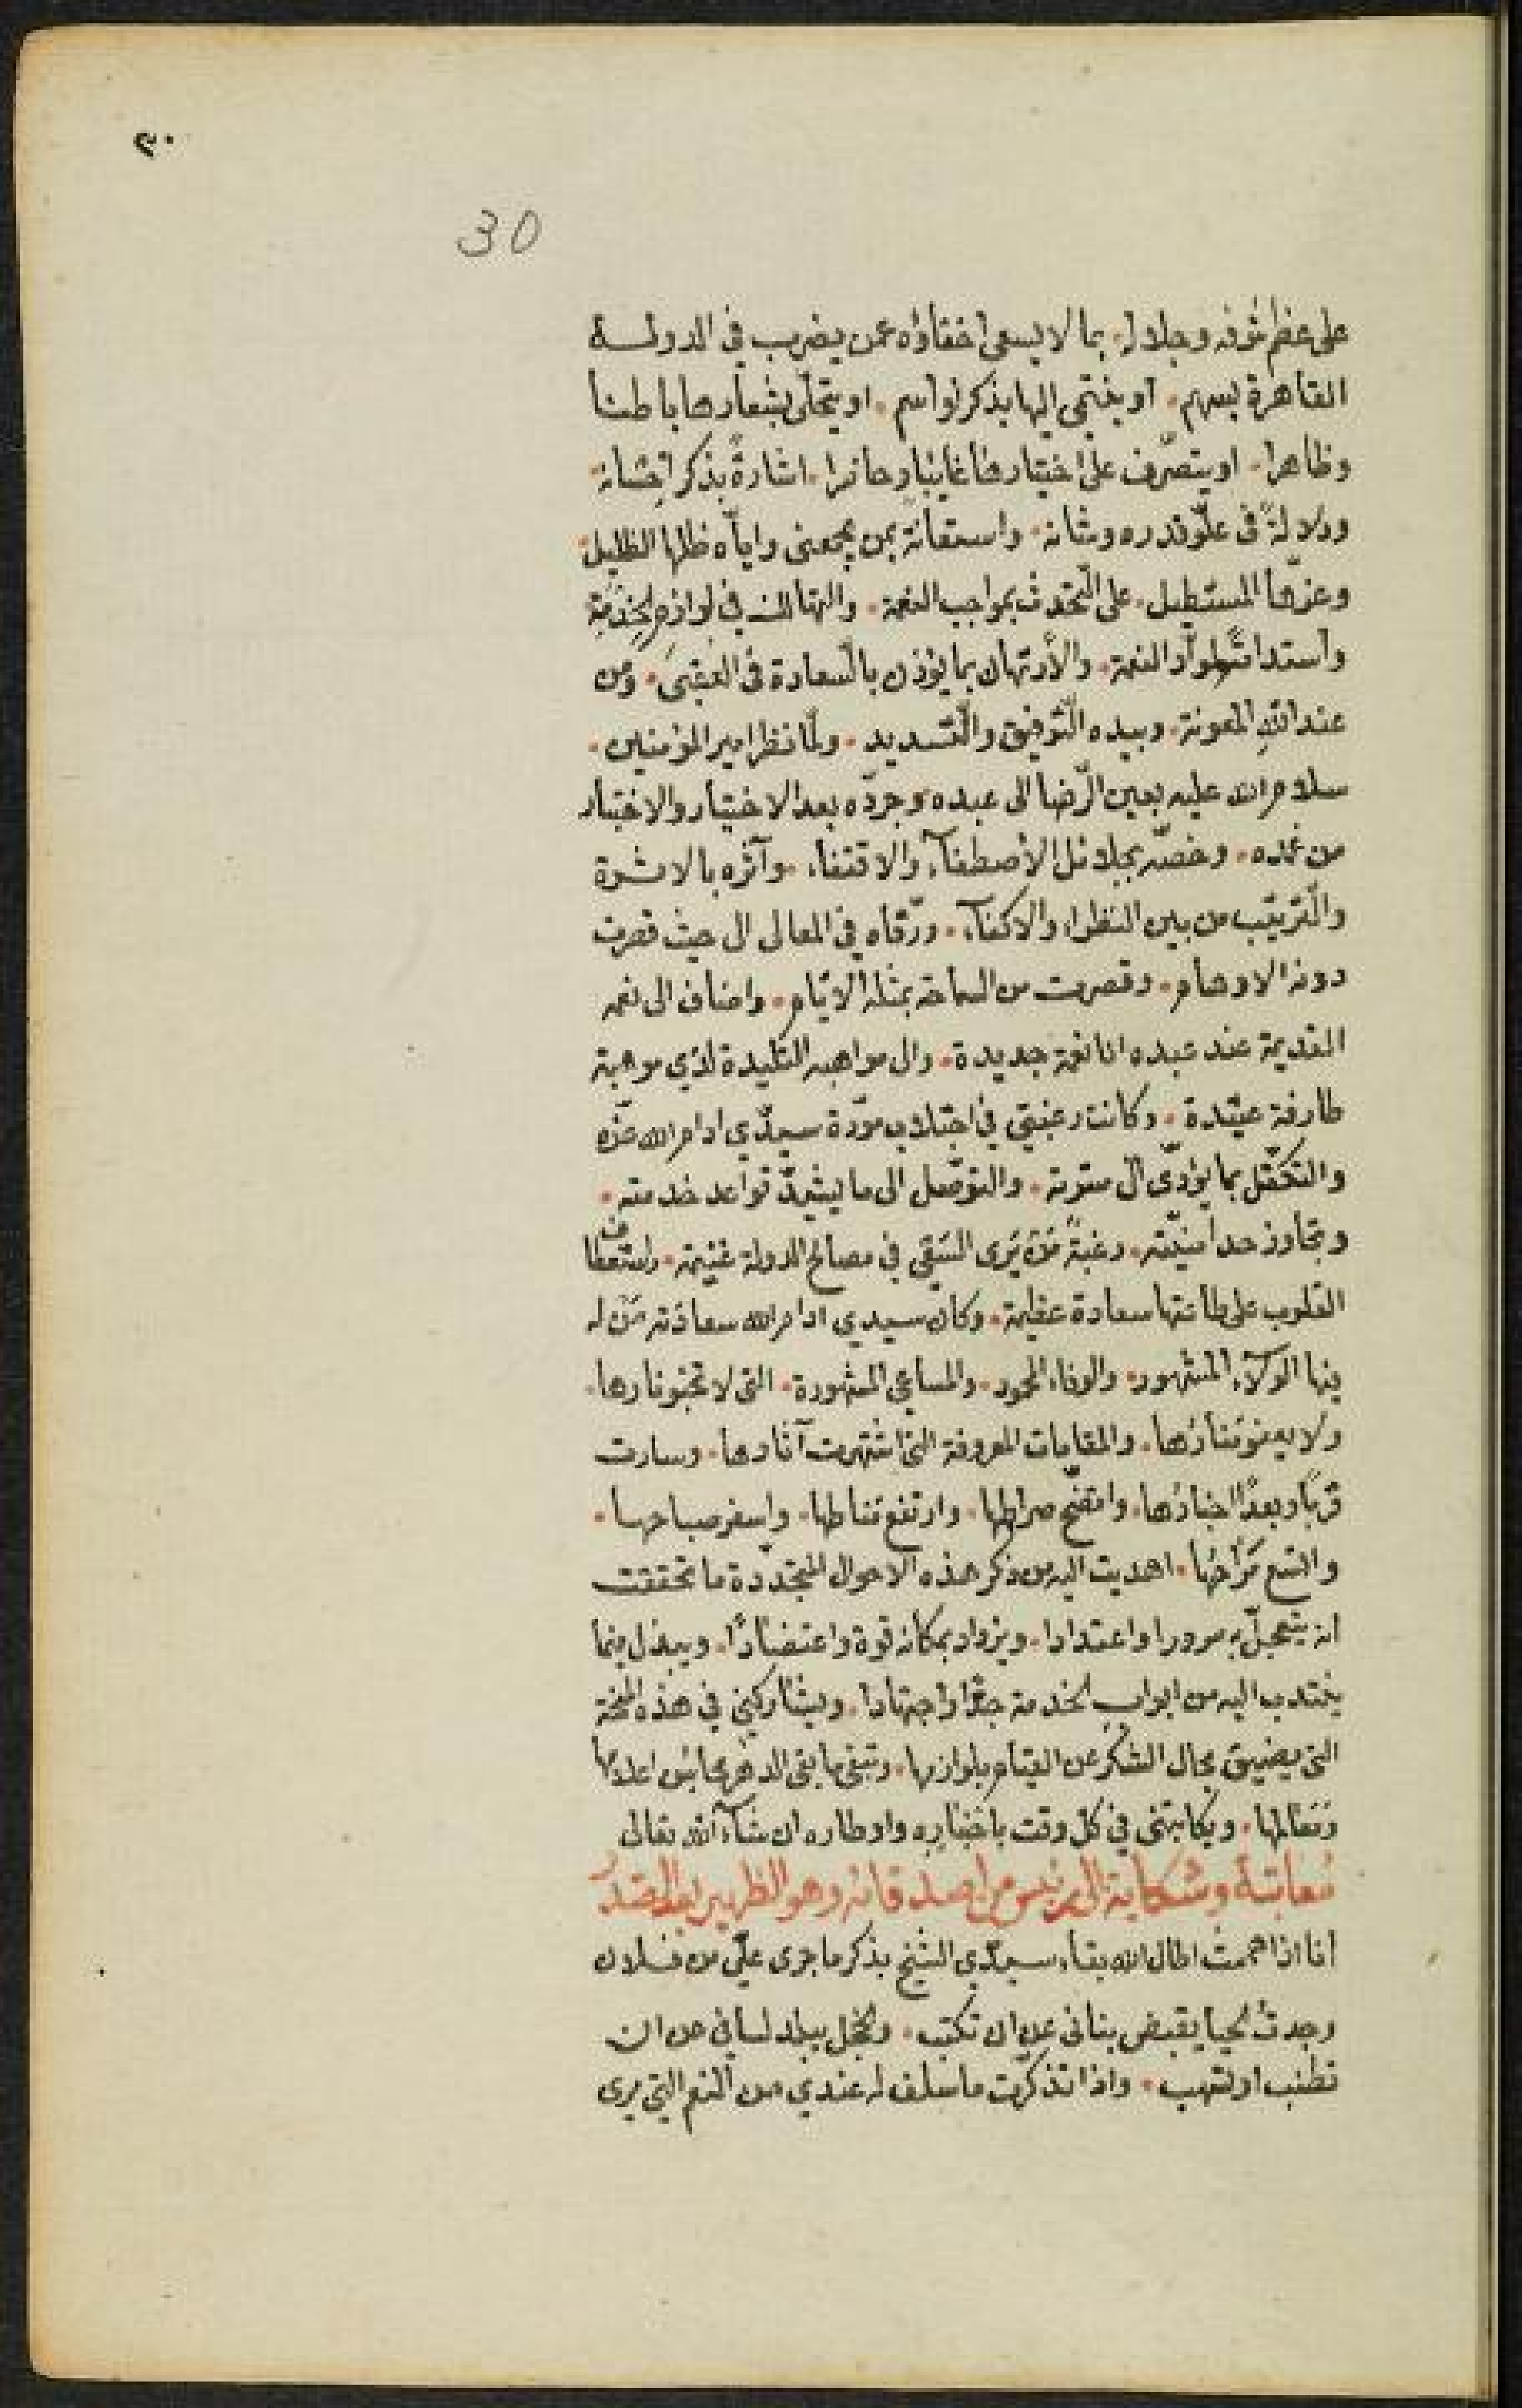 ٣٠
30
على عظم شرفه وجلاله. بما لا يسعى اخفاؤه عمن يضرب في الدولة
القاهرة بسهم. او ينتمى اليها بذكر او اسم. او يتحلى بشعارها باطنا
وظاهرا. او يتصرف على اختيارها غايبا وحاضرا. اشارةً بذكر احسانه
ودلالةً فى علو قدره وشانه. واستعانةً بمن يجمعنى واياه ظلها الظليل.
وعزها المستطيل. على التحدث بمواجب النعمة. والتهالك في لوازم الخدمة
واستدامة اطواد النعمة. والارتهان بما يؤذن بالسعادة فى العقبى. ومن
عند الله المعونة. وبيده التوفيق والتسديد. ولما نظر امير المؤمنين.
سلام الله عليه بعين الرضا الى عبده وجرده بعد الاختيار والاختبار
من غمده. وخصه بجلائل الاصطفآء والاقتفاء. وآثره بالاثرة
والترتيب من بين النظراء والاكفآء. ورقاه في المعالى الى حيث قصرت
دونه الاوهام. وقصرت من السماحة بمثله الايام. واضاف الى نعمه
القديمة عند عبده انا نعمة جديدة. والى مواهبه التليدة لدي موهبة
طارفة عتيدة. وكانت رغبتي في اجتلاب مودة سيدي ادام الله عزه
والتكفل بما يؤدى الى مسرته. والتوصل الى ما يشيد قواعد خدمته.
وتجاوز حد امنيته. رغبةً من يرى السعى في مصالح الدولة غنيمة. واستعطاف
القلوب على طاعتها سعادة عظيمة. وكان سيدي ادام الله سعادته من له
فيها الولآء المشهور. والوفاء المحمود. والمساعى المشهورة. التى لا تخبو نارها.
ولا يعفو منارها. والمقامات المعروفة التى اشتهرت آثارها. وسارت
قربًا وبعدًا اخبارها. واتضح صراطها. وارتفع مناطها. واسفر صباحها.
واتسع مراحها. اهديت اليه من ذكر هذه الاحوال المتجددة ما تحققت
انه يتعجل به سرورا واعتدادا. ويزداد بمكانه قوة واعتضادًا. ويبذل فيما
ينتدب اليه من ابواب الخدمة جدًا واجتهادا. ويشاركني في هذه المنحة
التى يضيق مجال الشكر عن القيام بلوازمها. وتبقى ما بقى الدهر محاسن اعلامها
ومعالمها. ويكاتبنى في كل وقت باخباره واوطاره ان شآء الله تعالى
معاتبة وشكاية الى رئيس من اصدقائه وهو الظهير ابو الصدر
انا اذا هممت اطال الله بقاء سيدي الشيخ بذكر ما جرى على من فلان
وجدت الحيا يقبض بنانى عن ان تكتب. والخجل يبلد لسانى عن ان
تطنب او تسهب. واذا تذكرت ما سلف له عندي من النعم التى يرى